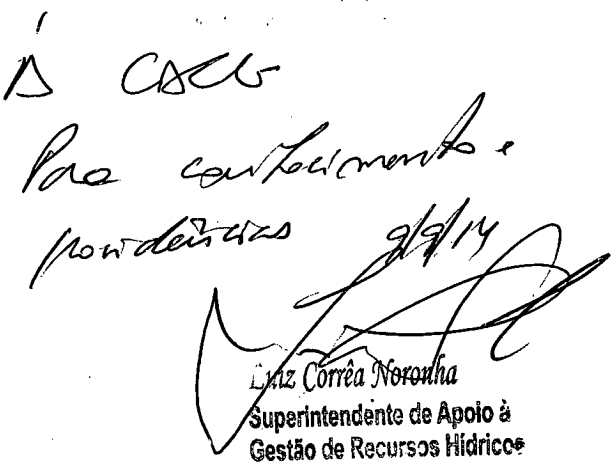 À CACG
Para conhecimento e
providências 9/9/14
Luiz Corrêa Noronha
Superintendente de Apoio à
Gestão de Recursos Hídricos